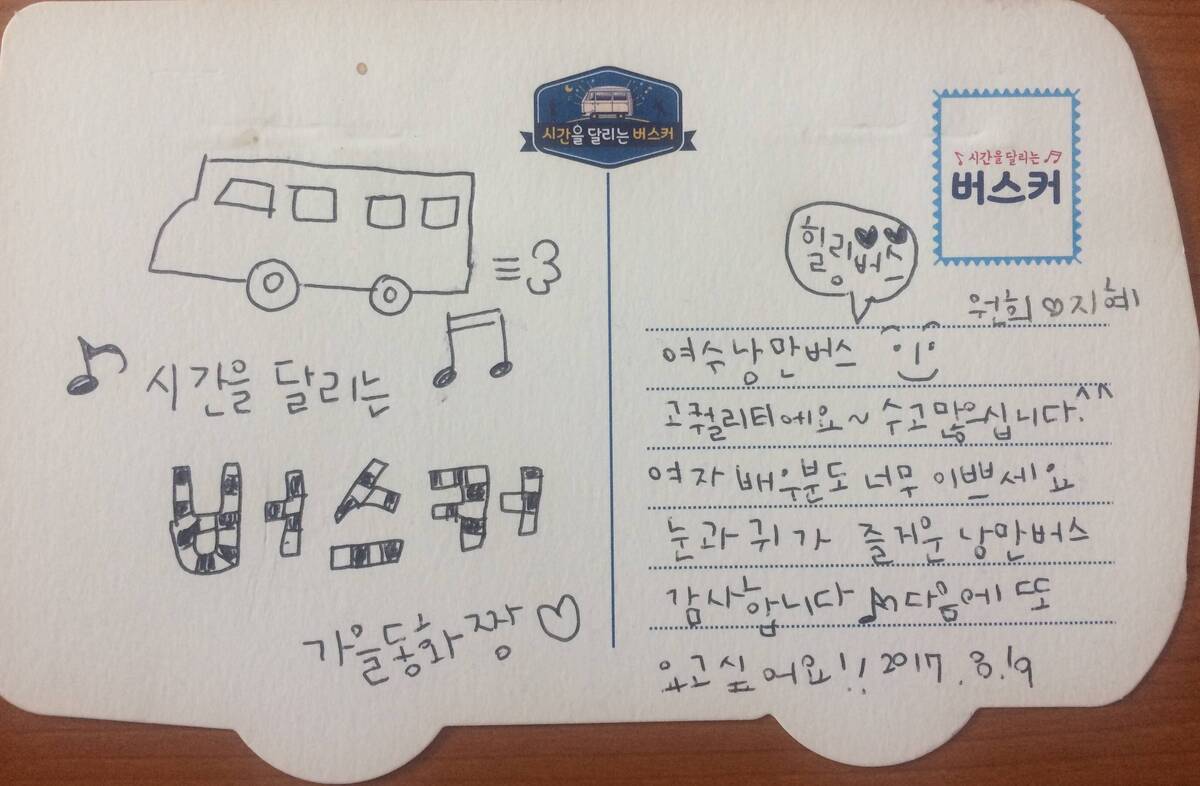 시간을 달리는 버스커
♪ 시간을 달리는 ♬
버스커
힐링♥♥
버스
원희♡지혜
여수낭만버스
고퀄리티에요~ 수고많으십니다.^^
여자 배우분도 너무 이쁘세요
눈과 귀가 즐거운 낭만버스
감사합니다 ♪ 다음에 또
오고싶어요!! 2017.8.19
♪ 시간을 달리는 ♫
버스커
가을동화 짱♡